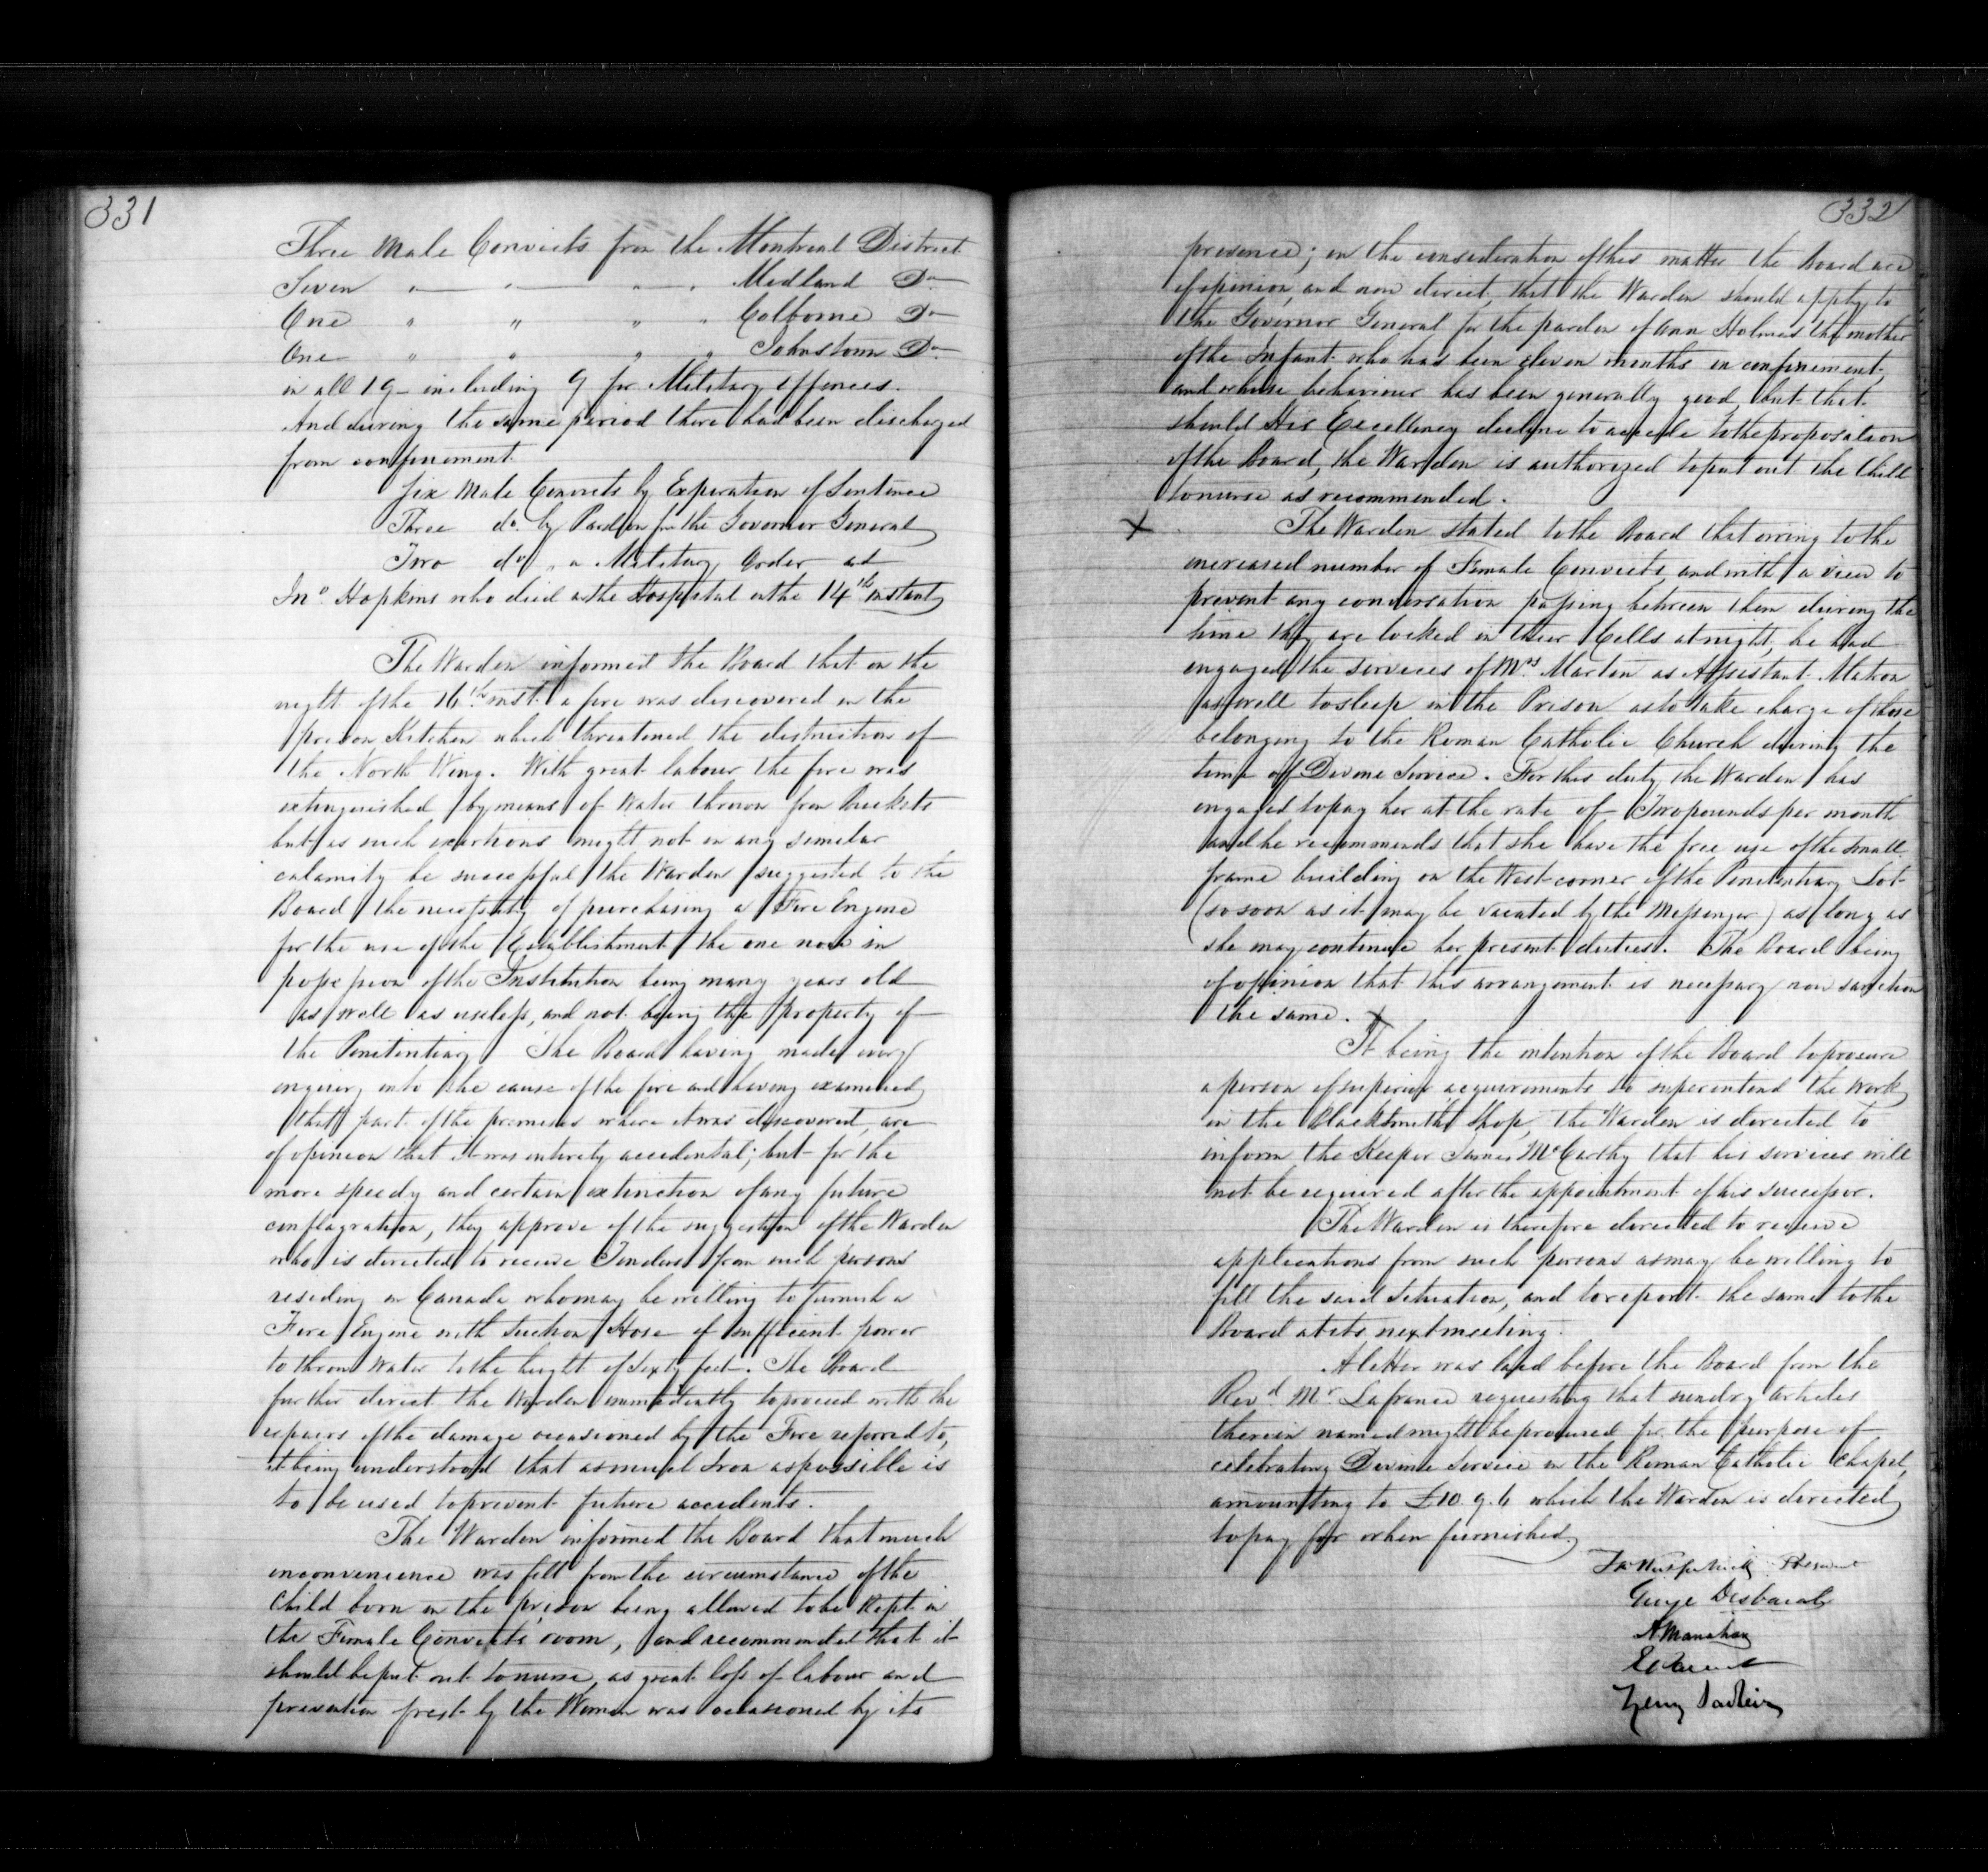 331
Three Male Convicts from the Montreal District
Seven " " " " Midland Do
One " " " " Colborne Do
One " " " " Johnstown Do
in all 19 - including 9 for Military Offences.
And during the same period there had been discharged
from confinement
Six Male Convicts by Expiration of Sentence
Three do. by Pardon fm the Governor General
Two do " a Military Order and
Jno. Hopkins who died in the Hospital on the 14th instant
The Warden informed the Board that on the
night of the 16th inst. a fire was discovered in the
prison Kitchen which threatened the destruction of
the North Wing. With great labour the fire was
extinguished by means of Water thrown from Buckets
but as such exertions might not in any similar
calamity be successful the Warden suggested to the
Board the necessity of purchasing a Fire Engine
for the use of the Establishment the one now in
possession of the Institution being many years old
as well as useless, and not being the property of
the Penitentiary The Board having made every
enquiry into the cause of the fire and having examined
that part of the premises where it was discovered, are
of opinion that it was entirely accidental; but for the
more speedy and certain extinction of any future
conflagration, they approve of the suggestion of the Warden
who is directed to receive Tenders from such persons
residing in Canada who may be willing to furnish a
Fire Engine with Suction Hose of sufficient power
to throw Water to the height of Sixty feet. The Board
further direct the Warden immediately to proceed with the
repairs of the damage occasioned by the Fire referred to,
it being understood that as much Iron as possible is
to be used to prevent future accidents.
The Warden informed the Board that much
inconvenience was felt from the circumstance of the
Child born in the prison being allowed to be Kept in
the Female Convicts' room, and recommended that it
should be put out to nurse, as great loss of labour and
by the Women was occasioned by its
332
presence; on the consideration of this matter the Board are
of opinion, and now direct, that the Warden should apply to
the Governor General for the pardon of Ann Holmes the mother
of the Infant who has been eleven months in confinement,
and whose behaviour has been generally good, but that
should His Excellency decline to accede to the proposition
of the Board, the Warden is authorized to put out the Child
to nurse as recommended.
X The Warden stated to the Board that owing to the
increased number of Female Convicts, and with a view to
prevent any conversation passing between them during the
time they are locked in their Cells at night, he had
engaged the services of Mrs. Martin as Assistant Matron
as well to sleep in the Prison as to take charge of those
belonging to the Roman Catholic Church during the
time of Divine Service. For this duty the Warden has
engaged to pay her at the rate of Two pounds per month
and he recommends that she have the free use of the small
frame building on the West corner of the Penitentiary Lot
(so soon as it may be vacated by the Messenger) as long as
she may continue her present duties. The Board being
of opinion that this arrangement is necessary now sanction
the same. X
It being the intention of the Board to procure
a person of superior acquirements to superintend the Work
in the Blacksmith Shop, the Warden is directed to
inform the Keeper James McCarthy that his services will
not be required after the appointment of his successor.
The Warden is therefore directed to receive
applications from such persons as may be willing to
fill the said situation, and to report the same to the
Board at its next meeting.
A letter was laid before the Board from the
Revd. Mr. Lafrance requesting that sundry articles
therein named might be procured for the purpose of
celebrating Divine Service in the Roman Catholic Chapel,
amounting to £10.9.6 which the Warden is directed
to pay for when furnished.
President
George Desbarats
A Manahan

Henry